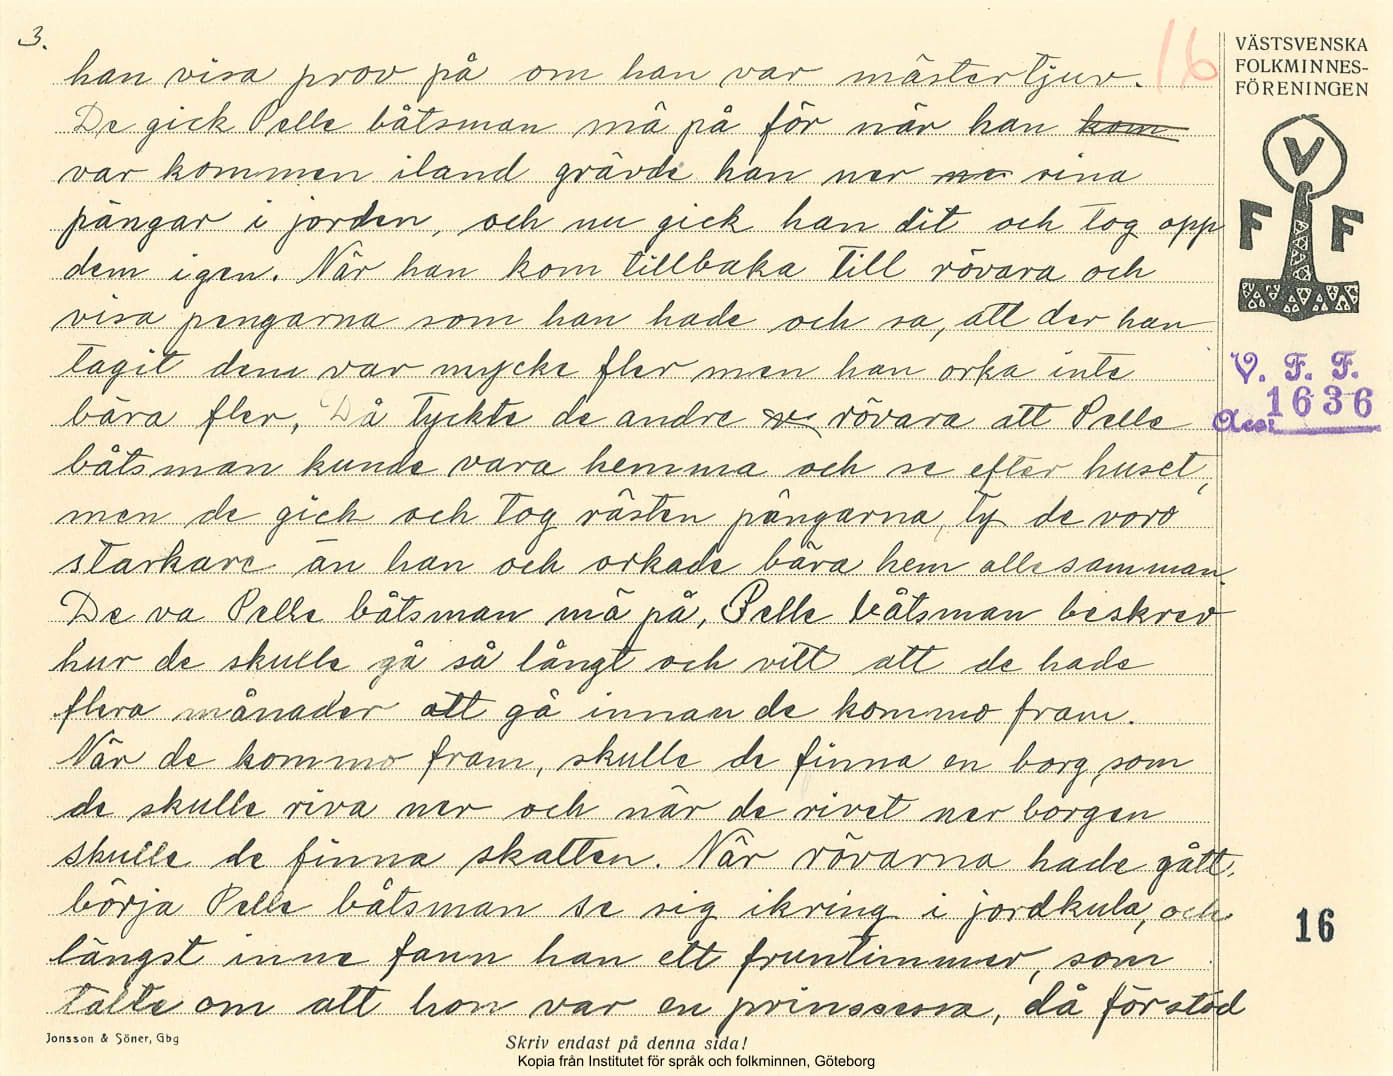 3.
16
VÄSTSVENSKA
FOLKMINNES-
FÖRENINGEN
V
F F
V. F. F.
Acc: 1636
han visa prov på om han var mästertjuv.
De gick Pelle båtsman mä på för när han kom
var kommen iland grävde han ner sina
pängar i jorden, och nu gick han dit och tog opp
dem igen. När han kom tillbaka till rövara och
visa pengarna som han hade och sa, att der han
tagit dem var mycke fler men han orka inte
bära fler, Då tyckte de andre rövara att Pelle
båtsman kunde vara hemma och se efter huset,
men de gick och tog rästen pängarna, ty de voro
starkare än han och orkade bära hem allesamman.
De va Pelle båtsman mä på, Pelle båtsman beskrev
hur de skulle gå så långt och vitt att de hade
flera månader att gå innan de kommo fram.
När de kommo fram, skulle de finna en borg, som
de skulle riva ner och når de rivet ner borgen
skulle de finna skatten. När rövarna hade gått,
börja Pelle båtsman se sig ikring i jordkula, och
längst inne fann han ett fruntimmer, som
talte om att hon var en prinsessa, då förstod
16
Jonsson & Söner, Gbg
Skriv endast på denna sida!
Kopia från Institutet för språk och folkminnen, Göteborg